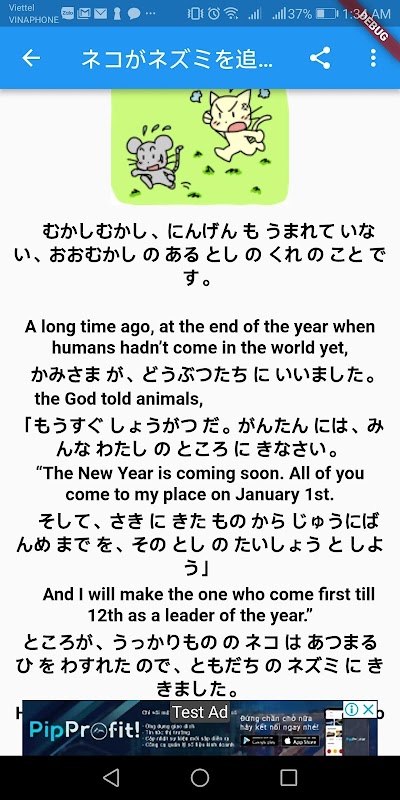 Viettel
VINAPHONE
Zalo
37%
1:36 AM
DEBUG
ネコがネズミを追...
むかしむかし 、 にんげん も うまれて いな
い 、 おおむかし の ある とし の くれ の こと で
す 。
A long time ago, at the end of the year when
humans hadn't come in the world yet,
かみさま が 、 どうぶつたち に いいました 。
the God told animals,
「もうすぐ しょうがつ だ 。 がんたん には 、 み
んな わたし の ところ に きなさい 。
“The New Year is coming soon. All of you
come to my place on January 1st.
そして 、 さき に きた もの から じゅうにば
んめ まで を 、 その とし の たいしょう と しよ
う」
And I will make the one who come first till
12th as a leader of the year.”
ところが 、 うっかりもの の ネコ は あつまる
ひ を わすれた ので 、 ともだち の ネズミ に き
きました 。
Test Ad
PipProfit!
Đừng chần chờ nữa
hãy kết nối ngay nhé!
Google Play
App Store